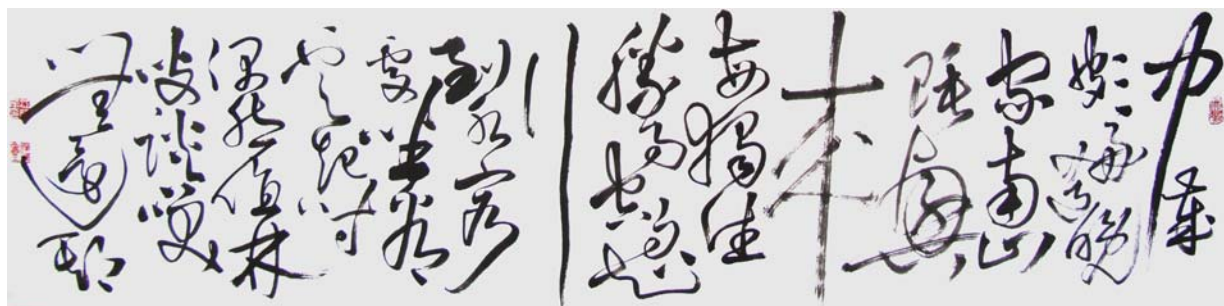 中歲
頗好道晚
家南山
陲興
來
每獨往
勝事空自知
行
到水窮
處坐看
雲起時
偶然值林
叟談笑
無還期